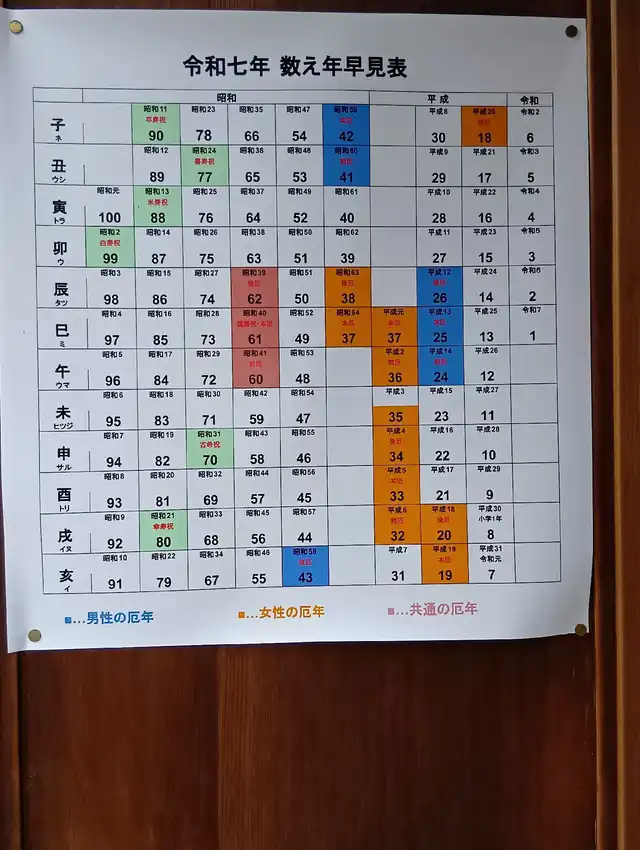 令和七年 数え年早見表
昭和 平成 令和
昭和11 昭和23 昭和35 昭和47 昭和59 平成8 平成20 令和2
卒寿祝 本厄 前厄
子 90 78 66 54 42 30 18 6
ネ
昭和12 昭和24 昭和36 昭和48 昭和60 平成9 平成21 令和3
喜寿祝 前厄
丑 89 77 65 53 41 29 17 5
ウシ
昭和元 昭和13 昭和25 昭和37 昭和49 昭和61 平成10 平成22 令和4
米寿祝
寅 100 88 76 64 52 40 28 16 4
トラ
昭和2 昭和14 昭和26 昭和38 昭和50 昭和62 平成11 平成23 令和5
白寿祝
卯 99 87 75 63 51 39 27 15 3
ウ
昭和3 昭和15 昭和27 昭和39 昭和51 昭和63 平成12 平成24 令和6
後厄 後厄 後厄
辰 98 86 74 62 50 38 26 14 2
タツ
昭和4 昭和16 昭和28 昭和40 昭和52 昭和64 平成元 平成13 平成25 令和7
還暦祝・本厄 本厄 本厄 本厄
巳 97 85 73 61 49 37 37 25 13 1
ミ
昭和5 昭和17 昭和29 昭和41 昭和53 平成2 平成14 平成26
前厄 前厄 前厄
午 96 84 72 60 48 36 24 12
ウマ
昭和6 昭和18 昭和30 昭和42 昭和54 平成3 平成15 平成27
未 95 83 71 59 47 35 23 11
ヒツジ
昭和7 昭和19 昭和31 昭和43 昭和55 平成4 平成16 平成28
古希祝 後厄
申 94 82 70 58 46 34 22 10
サル
昭和8 昭和20 昭和32 昭和44 昭和56 平成5 平成17 平成29
本厄
酉 93 81 69 57 45 33 21 9
トリ
昭和9 昭和21 昭和33 昭和45 昭和57 平成6 平成18 平成30
傘寿祝 前厄 後厄 小学1年
戌 92 80 68 56 44 32 20 8
イヌ
昭和10 昭和22 昭和34 昭和46 昭和58 平成7 平成19 平成31
後厄 本厄 令和元
亥 91 79 67 55 43 31 19 7
イ
■…男性の厄年 ■…女性の厄年 ■…共通の厄年